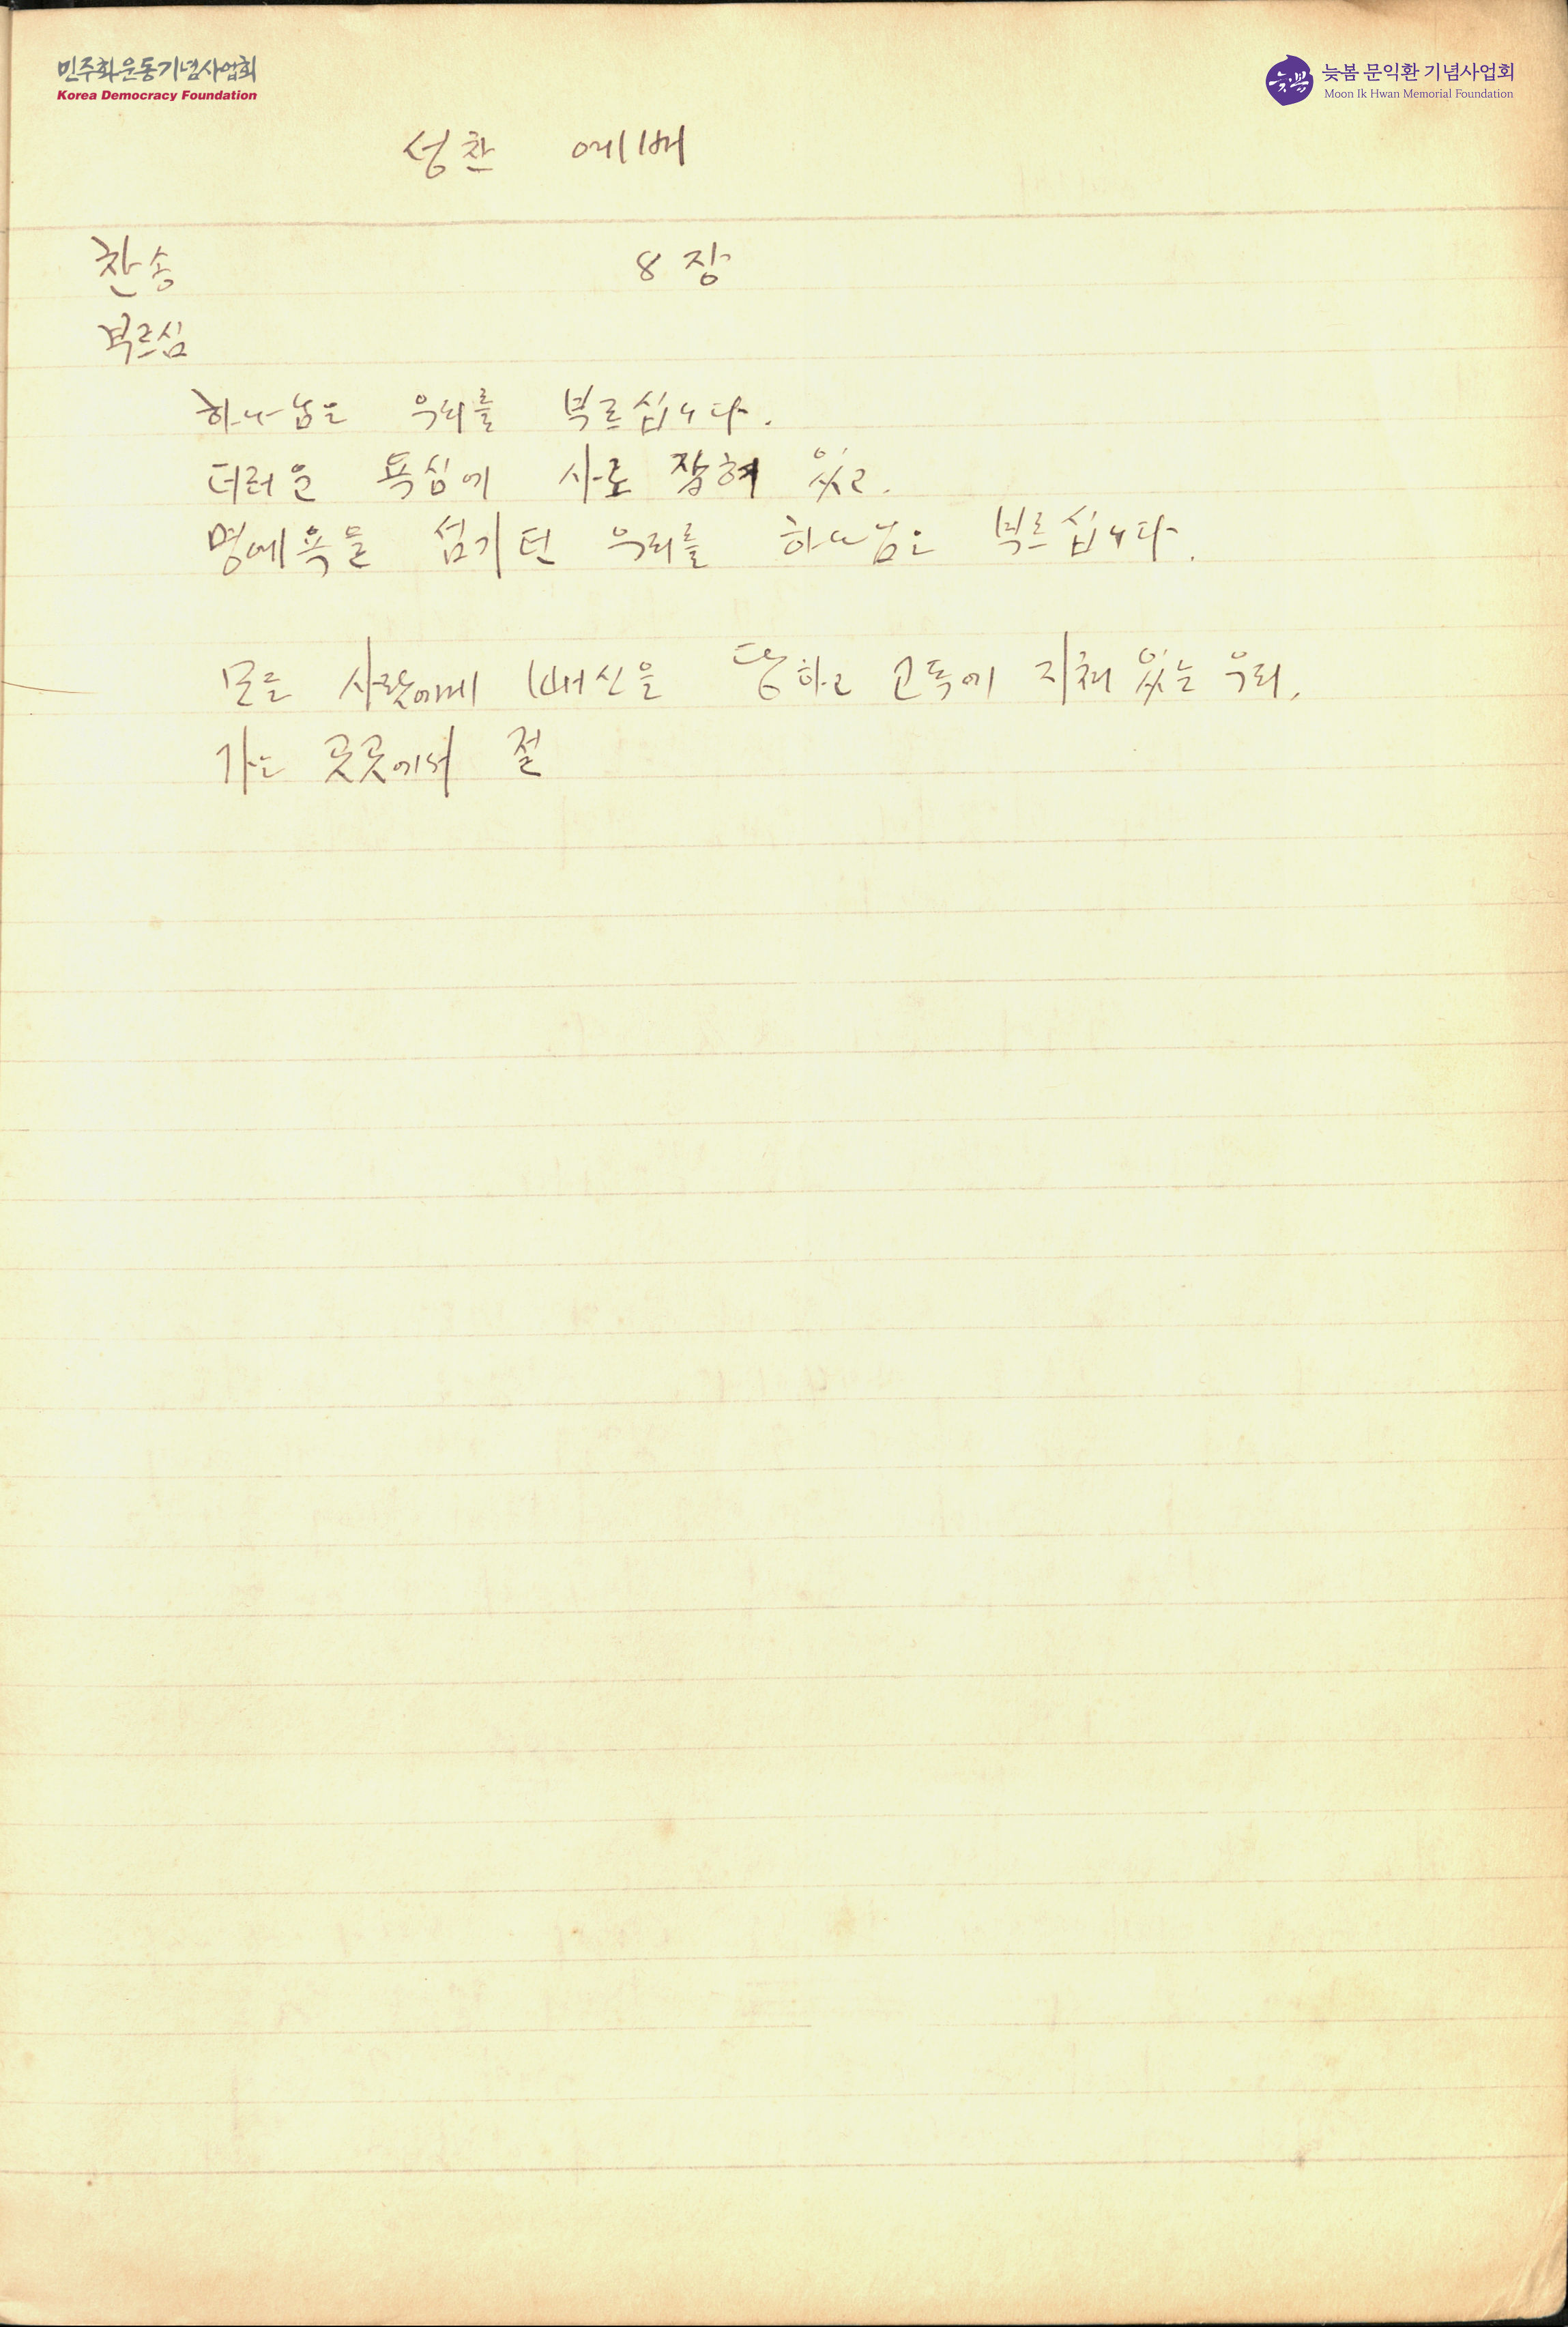 민주화운동기념사업회
Korea Democracy Foundation
늦봄 문익환 기념사업회
Moon Ik Hwan Memorial Foundation
늦봄
성찬 예배
찬송 8 장
부르심
하나님은 우리를 부르십니다.
더러운 욕심에 사로 잡혀 있고.
명예욕을 섬기던 우리를 하나님은 부르십니다.
모든 사람에게 배신을 당하고 고독에 지쳐 있는 우리.
가는 곳곳에서 절